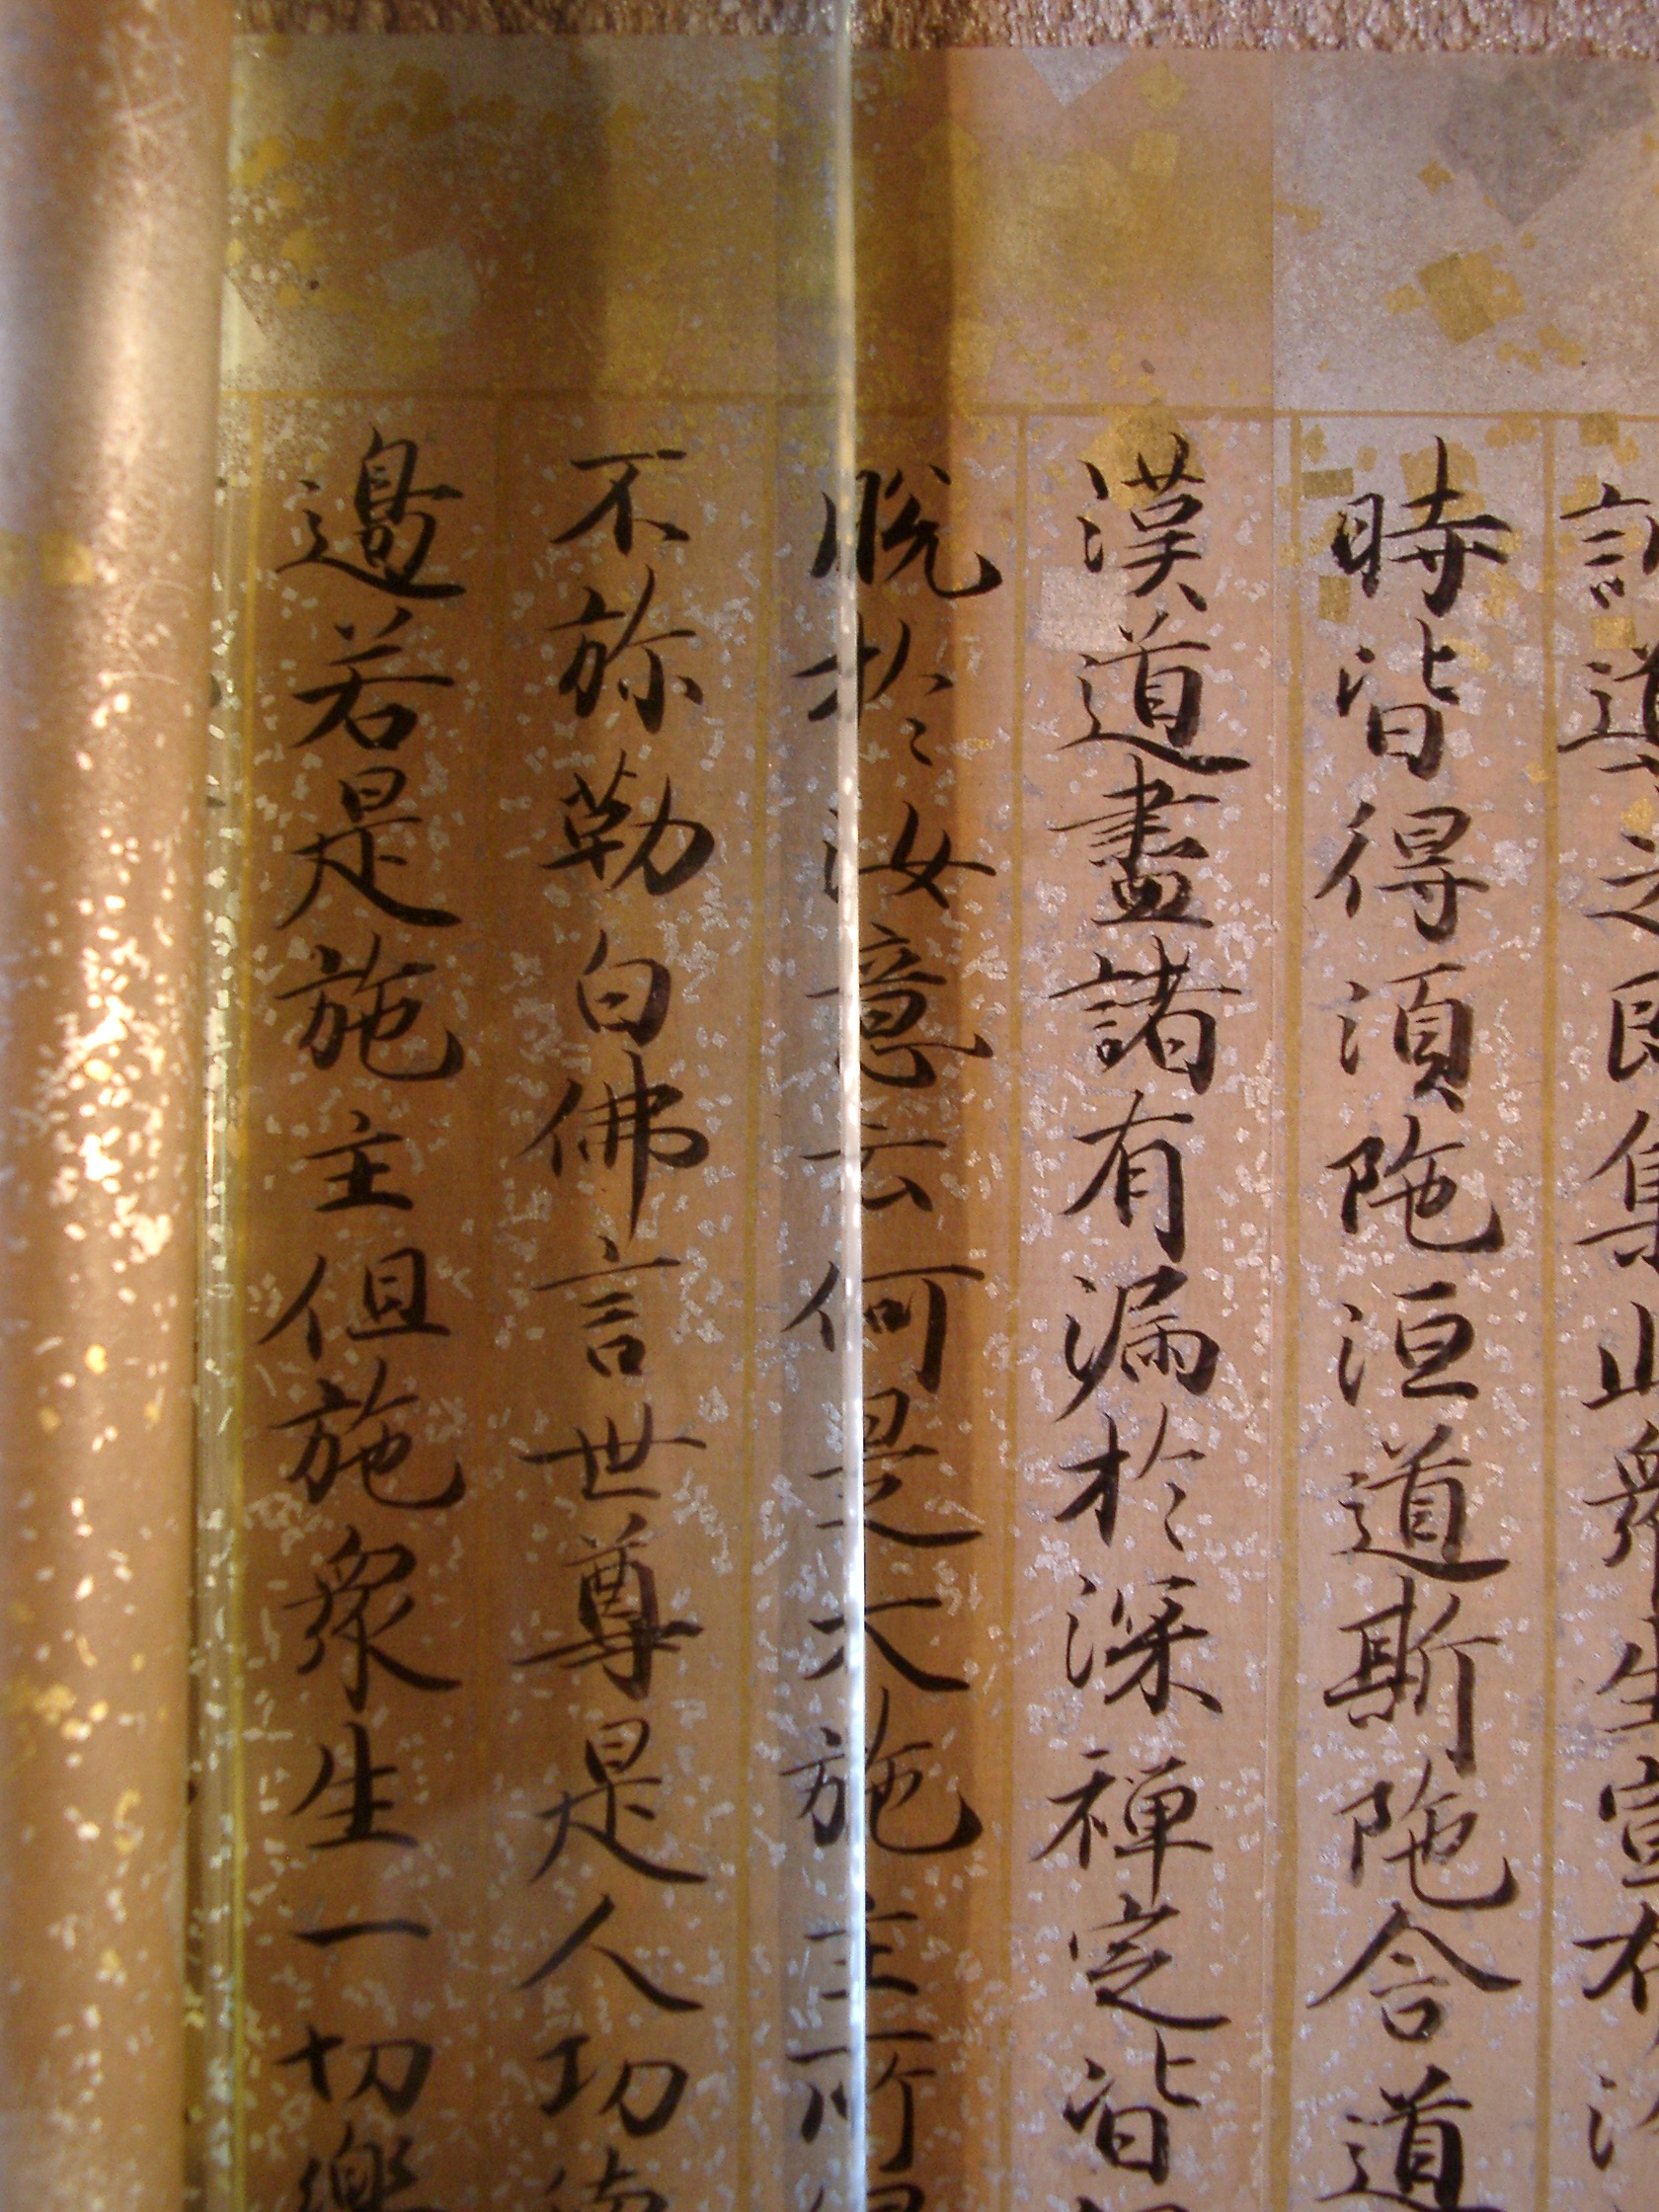 道之即集此衆生宣布法
時皆得須陁洹道斯陁含道
漢道盡諸有漏於深禪定皆
脫於汝意云何是大施主所得
不弥勒白佛言世尊是人功德
邊若是施主但施衆生一切樂